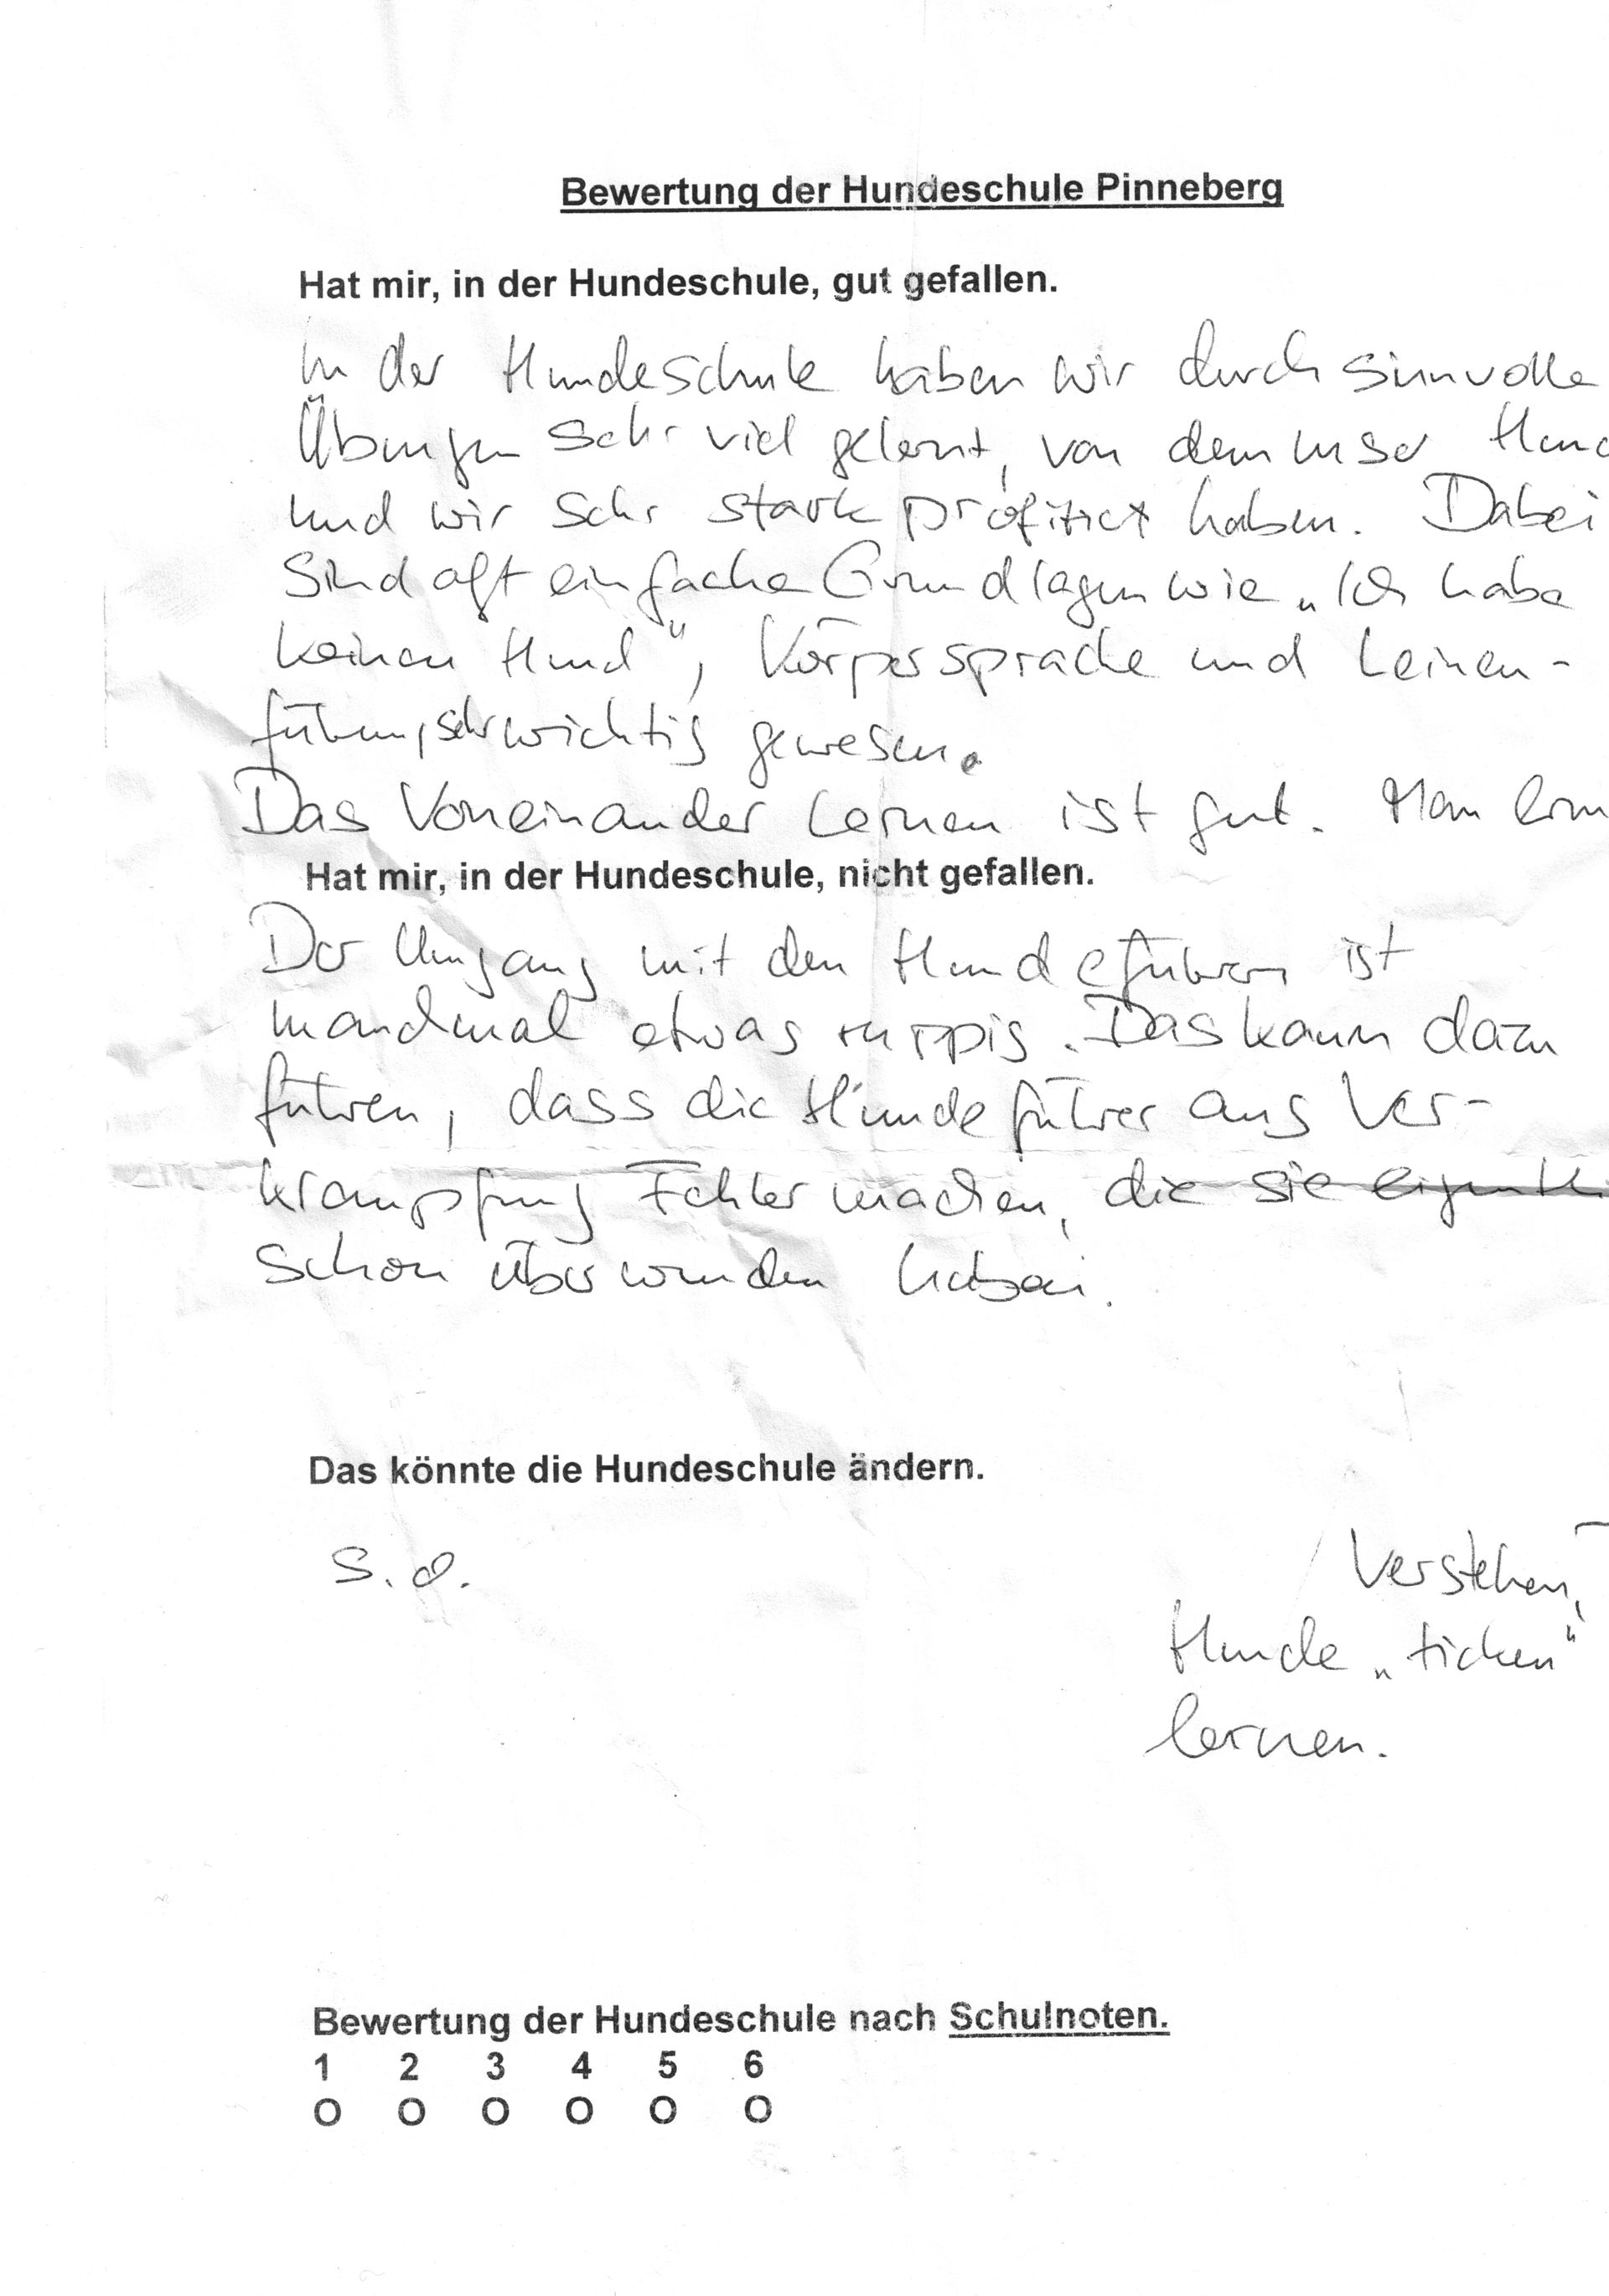 Bewertung der Hundeschule Pinneberg
Hat mir, in der Hundeschule, gut gefallen.
In der Hundeschule haben wir durch sinnvolle
Übungen sehr viel gelernt, von dem unser Hund
und wir sehr stark profitiert haben. Dabei
sind oft einfache Grundlagen wie „Ich habe
keinen Hund", Körpersprache und Leinen-
führung sehr wichtig gewesen.
Das Voneinander Lernen ist gut. Man
Hat mir, in der Hundeschule, nicht gefallen.
Der Umgang mit den Hundeführern ist
manchmal etwas ruppig. Das kann dazu
führen, dass die Hundeführer aus Ver-
krampfung Fehler machen, die sie
schon überwunden haben.
Das könnte die Hundeschule ändern.
s.o.
Verstehen,
Hunde „ticken"
lernen.
Bewertung der Hundeschule nach Schulnoten.
1 2 3 4 5 6
O O O O O O